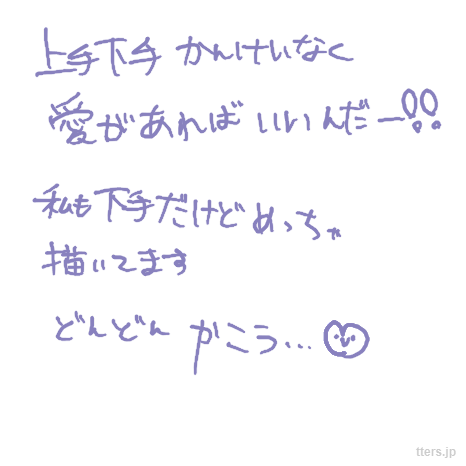 上手下手 かんけいなく
愛があれば いいんだー!!
私も下手だけど めっちゃ
描いてます
どんどん かこう...
tters.jp